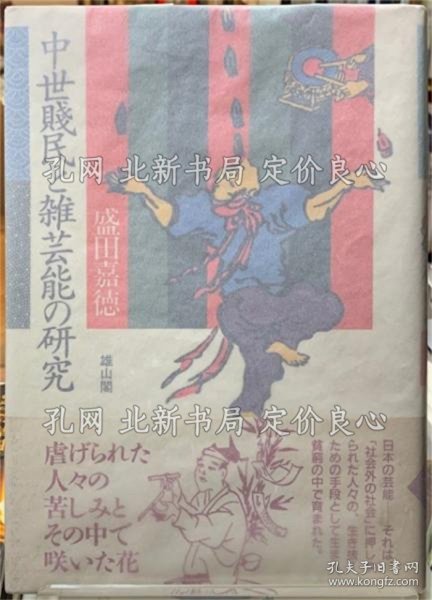 中世賤民と雑芸能の研究
盛田嘉徳
雄山閣
孔网 北新书局 定价良心
孔网 北新书局 定价良心
孔网 北新书局 定价良心
虐げられた
人々の
苦しみと
その中で
咲いた花
日本の芸能
それは
「社会外の社会」に押し
られた人々の、生き
ための手段として生ま
貧窮の中で育まれた。
孔夫子旧书网
www.kongfz.com